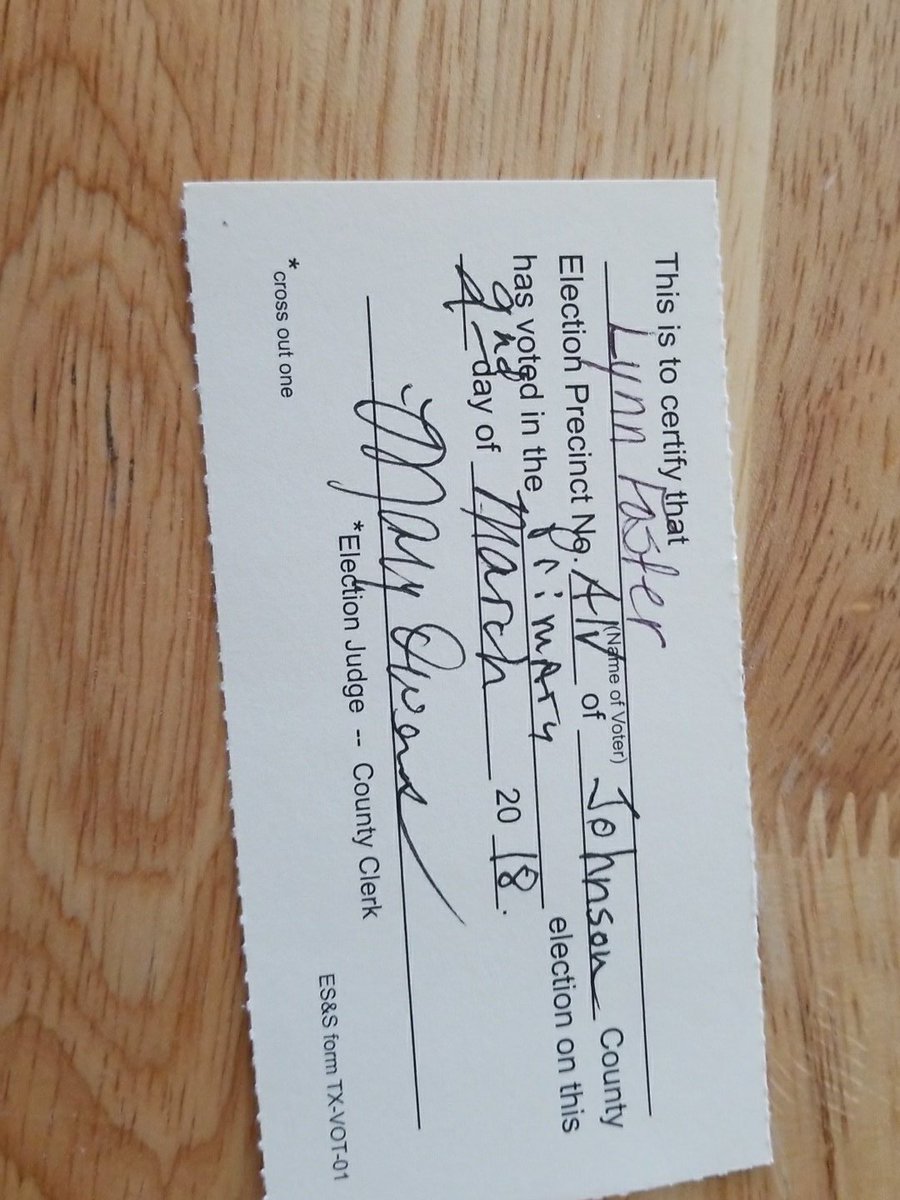 This is to certify that
Lynn Foster
(Name of Voter)
Election Precinct No. of Johnson County
has voted in the Primary election on this
day of March 20 18.
Mary Owens
*Election Judge -- County Clerk
* cross out one
ES&S form TX-VOT-01